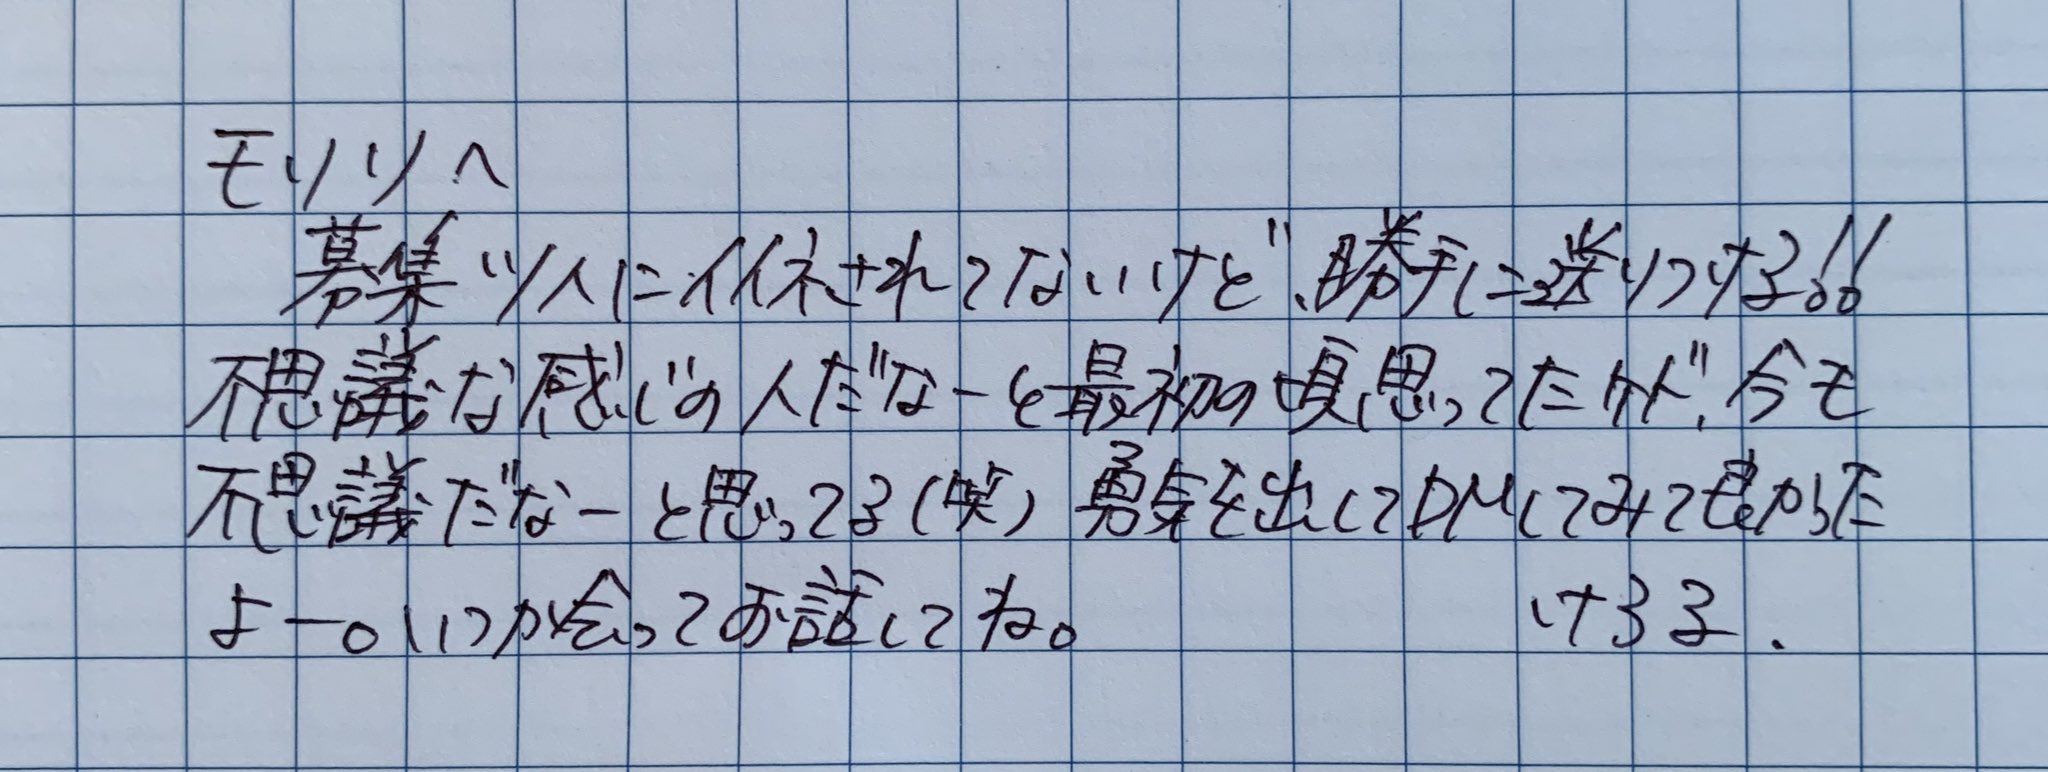 モリリへ
募集ツイにイイネされてないけど、勝手に送りつける!!
不思議な感じの人だなーと最初の頃思ってたケド、今も
不思議だなーと思ってる(笑) 勇気を出してDMしてみて良かった
よー。いつか会ってお話してね。 けろる.